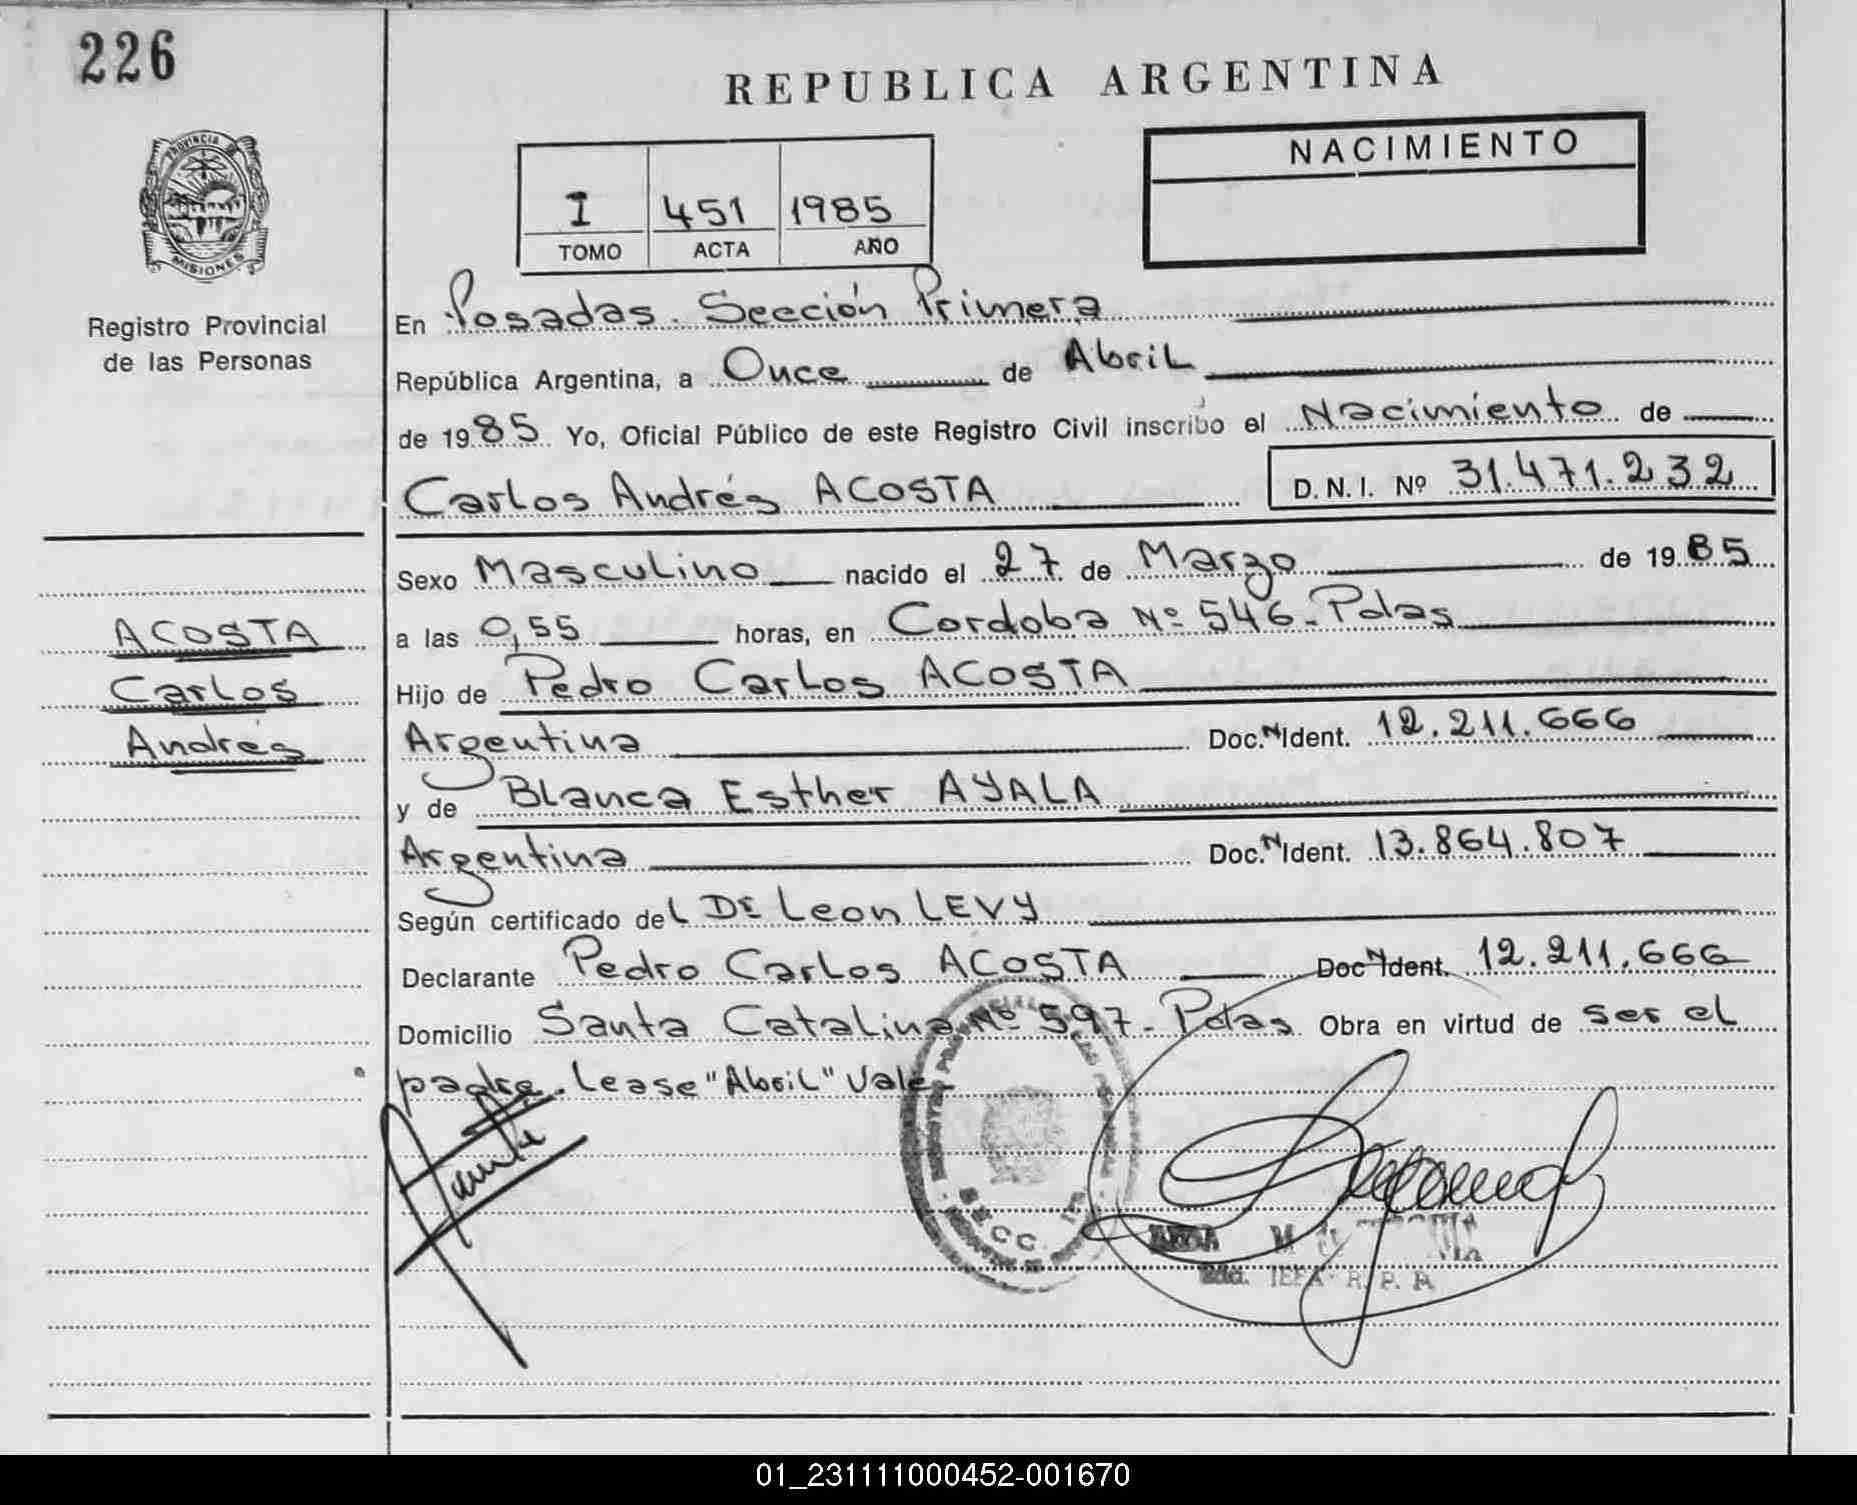 226
REPUBLICA ARGENTINA
PROVINCIA DE
MISIONES
Registro Provincial
de las Personas
I 451 1985
TOMO ACTA AÑO
NACIMIENTO
En Posadas. Sección Primera
República Argentina, a Once de Abril
de 1985 Yo, Oficial Público de este Registro Civil inscribo el Nacimiento de
Carlos Andrés ACOSTA D.N.I. Nº 31.471.232
Sexo Masculino nacido el 27 de Marzo de 1985
a las 0,55 horas, en Cordoba Nº 546-Pdas
Hijo de Pedro Carlos ACOSTA
Argentina Doc. N Ident. 12.211.666
y de Blanca Esther AYALA
Argentina Doc. N Ident. 13.864.807
Según certificado del Dr Leon LEVY
Declarante Pedro Carlos ACOSTA Doc N Ident. 12.211.666
Domicilio Santa Catalina Nº 597-Pdas. Obra en virtud de ser el
padre. Lease "Abril" Vale-
ACOSTA
Carlos
Andrés
SECC. 1RA
2da. JEFA R. P. P.
01_231111000452-001670